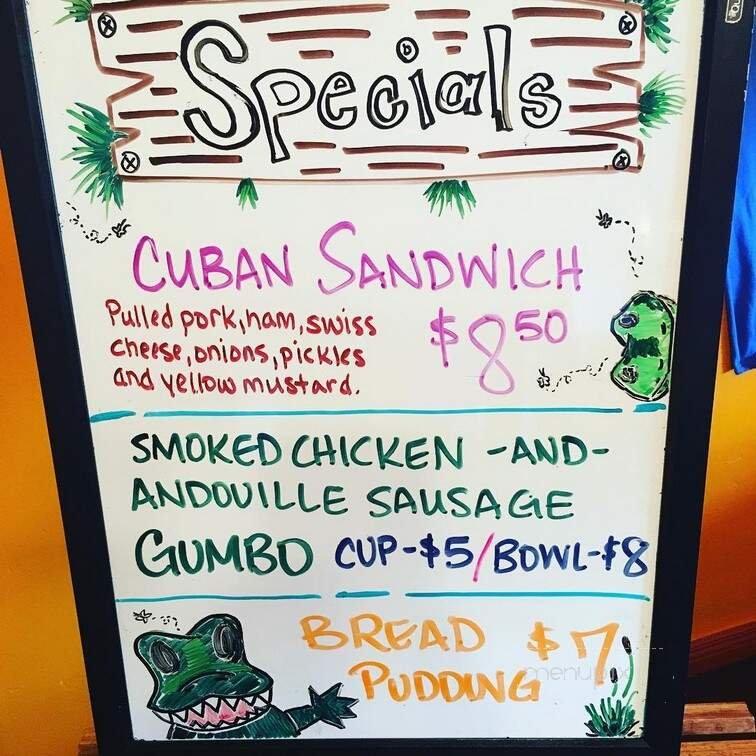 Specials
CUBAN SANDWICH
Pulled pork, ham, swiss
cheese, onions, pickles
and yellow mustard.
$8.50
SMOKED CHICKEN -AND-
ANDOUILLE SAUSAGE
GUMBO CUP-$5/BOWL-$8
BREAD $7
PUDDING
menupix